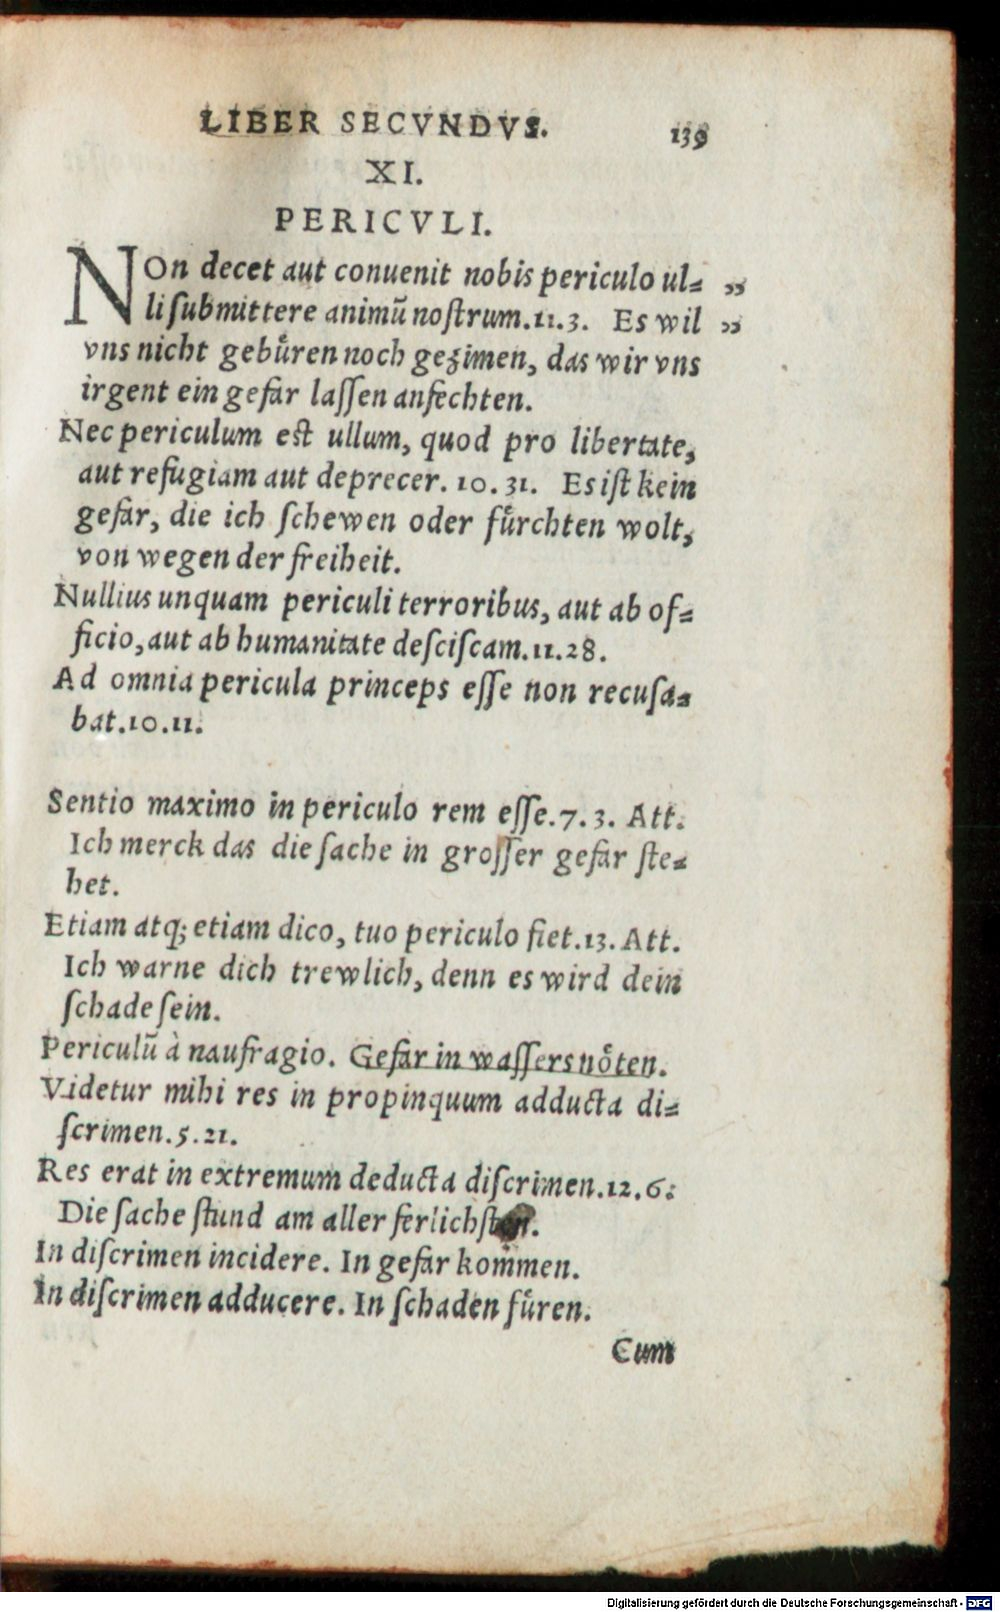 LIBER SECVNDVS. 139
XI.
PERICVLI.
NOn decet aut conuenit nobis periculo ul= „
li ſubmittere animū noſtrum.11.3. Es wil „
vns nicht gebuͤren noch gezimen, das wir vns
irgent ein gefar laſſen anfechten.
Nec periculum est ullum, quod pro libertate,
aut refugiam aut deprecer. 10.31. Es iſt kein
gefar, die ich ſchewen oder fuͤrchten wolt,
von wegen der freiheit.
Nullius unquam periculi terroribus, aut ab of=
ficio, aut ab humanitate deſciſcam.11.28.
Ad omnia pericula princeps eſſe non recuſa=
bat.10.11.
Sentio maximo in periculo rem eſſe.7.3. Att.
Ich merck das die ſache in groſſer gefar ſte=
het.
Etiam atq; etiam dico, tuo periculo fiet.13. Att.
Ich warne dich trewlich, denn es wird dein
ſchade ſein.
Periculū à naufragio. Gefar in waſſersnoͤten.
Videtur mihi res in propinquum adducta di=
ſcrimen.5.21.
Res erat in extremum deducta diſcrimen.12.6:
Die ſache ſtund am aller ferlichſten.
In diſcrimen incidere. In gefar kommen.
In diſcrimen adducere. In ſchaden fuͤren.
Cum
Digitalisierung gefördert durch die Deutsche Forschungsgemeinschaft - DFG